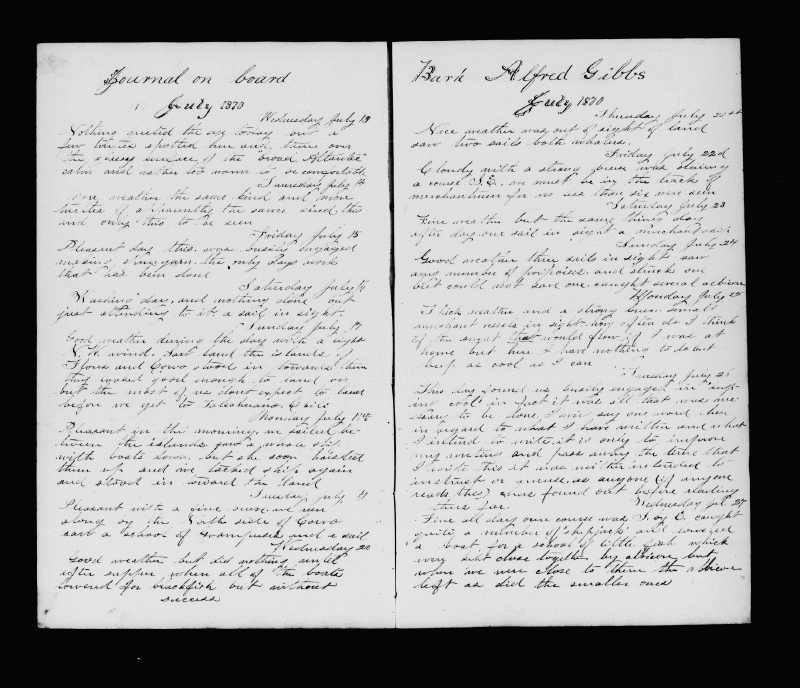 Journal on board
July 1870
Wednesday July 13
Nothing marred the day today but a
few turtles spotted here and there over
the surface of the broad Atlantic
calm and rather too warm to be comfortable
Thursday July 14
weather the same kind and more
turtles of the same kind this
and only this to be seen
Friday July 15
Pleasant day this, was busily engaged
making the only days work
that has been done
Saturday July 16
Washing day, and nothing done but
just attending to it. a sail in sight.
Sunday July 17
Good weather during the day with a light
N. W. wind. land the islands of
Flores and Corvo stood in towards them
they looked good enough to land on
but the most of us dont expect to
before we get to Talcahuano, Chili
Monday July 18th
Pleasant in the morning, we sailed be-
tween the islands saw a whale ship
with boats down. but she soon hoisted
them up and we tacked ship again
and stood in toward the land
Tuesday July 19
Pleasant with a fine we run
along by the North side of Corvo
saw a school of Grampuses and a sail
Wednesday 20
Good weather but did nothing until
after supper when all of the boats
lowered for blackfish but without
success
Bark Alfred Gibbs
July 1870
Thursday July 21st
Nice weather was out of sight of land
saw two sails both whalers.
Friday July 22d
Cloudy with a strong breeze was steering
a course S.E. we must be in the track of
merchantmen for no less than six were seen
Saturday July 23
Fine weather but the same things day
after day. one sail in sight a merchantman
Sunday July 24
Good weather three sails in sight saw
any number of porpoises and struck one
but could not save one. caught several albicore
Monday July 25
Thick weather and a strong breeze several
merchant vessels in sight how often do I think
of the sweat that would flow if I was at
home but here I have nothing to do but
keep as cool as I can
Tuesday July 26
This day found us busily engaged in "keep-
ing cool" in fact it was all that was nece-
ssary to be done, I will say one word here
in regard to what I have written and what
I intend to write. it is only to improve
my writing and pass away the time that
I write this it was neither intended to
instruct or amuse, as anyone (if anyone
reads this) has found out before reading
thus far.
Wednesday Jul 27
Fine all day our course was S. by E. caught
quite a number of "skipjack" and lowered
a boat for a school of little fish which
were kept close together by albicore but
when we were close to them the albicore
left as did the smaller ones